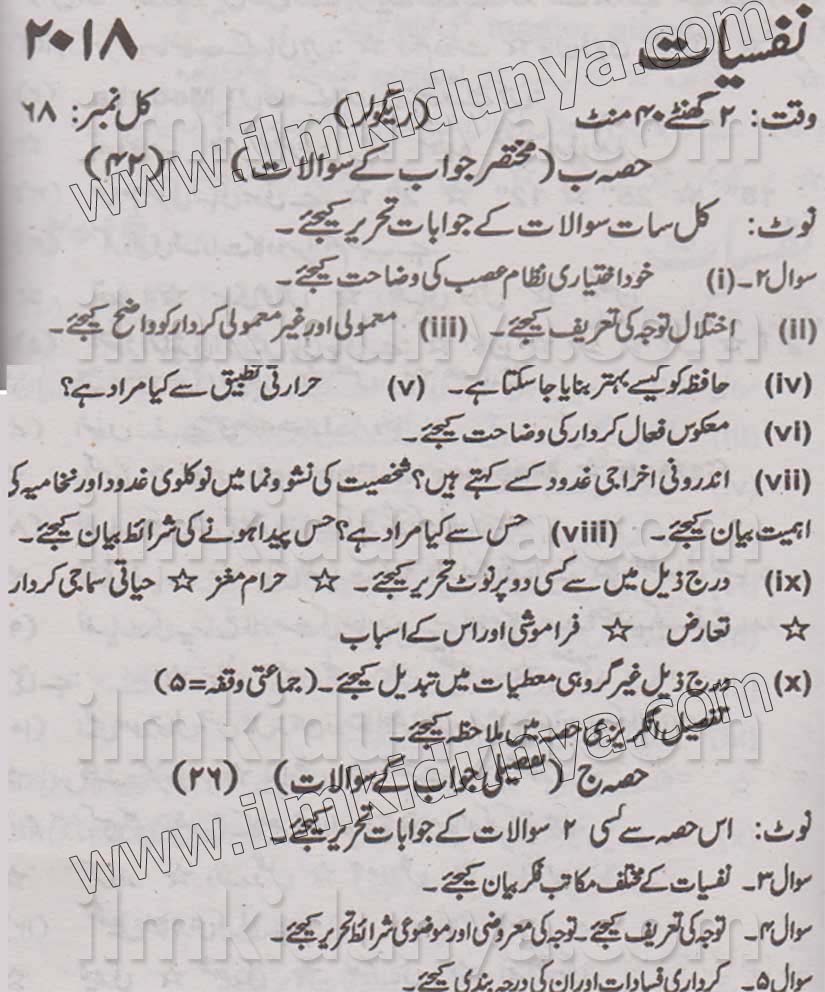 نفسیات ۲۰۱۸
وقت: ۲ گھنٹے ۴۰ منٹ (ریگولر) کل نمبر: ۶۸
حصہ ب (مختصر جواب کے سوالات) (۴۲)
نوٹ: کل سات سوالات کے جوابات تحریر کیجئے۔
سوال ۲۔ (i) خود اختیاری نظام عصب کی وضاحت کیجئے۔
(ii) اختلال توجہ کی تعریف کیجئے۔ (iii) معمولی اور غیر معمولی کردار کو واضح کیجئے۔
(iv) حافظہ کو کیسے بہتر بنایا جا سکتا ہے۔ (v) حرارتی تطبیق سے کیا مراد ہے؟
(vi) معکوس فعال کردار کی وضاحت کیجئے۔
(vii) اندرونی اخراجی غدود کسے کہتے ہیں؟ شخصیت کی نشوونما میں نوکلوی غدود اور نخامیہ کی
اہمیت بیان کیجئے۔ (viii) حس سے کیا مراد ہے؟ حس پیدا ہونے کی شرائط بیان کیجئے۔
(ix) درج ذیل میں سے کسی دو پر نوٹ تحریر کیجئے۔ ☆ حرام مغز ☆ حیاتی سماجی کردار
☆ تعارض ☆ فراموشی اور اس کے اسباب
(x) درج ذیل غیر گروہی معطیات میں تبدیل کیجئے۔ (جماعتی وقفہ = ۵)
تفصیل انگریزی حصہ میں ملاحظہ کیجئے۔
حصہ ج (تفصیلی جواب کے سوالات) (۲۶)
نوٹ: اس حصہ سے کسی ۲ سوالات کے جوابات تحریر کیجئے۔
سوال ۳۔ نفسیات کے مختلف مکاتب فکر بیان کیجئے۔
سوال ۴۔ توجہ کی تعریف کیجئے۔ توجہ کی معروضی اور موضوعی شرائط تحریر کیجئے۔
سوال ۵۔ کرداری فسادات اور ان کی درجہ بندی کیجئے۔
www.ilmkidunya.com
www.ilmkidunya.com
ilmkidunya.com
ilmkidunya.com
ilmkidunya.com
ilmkidunya.com
ilmkidunya.com